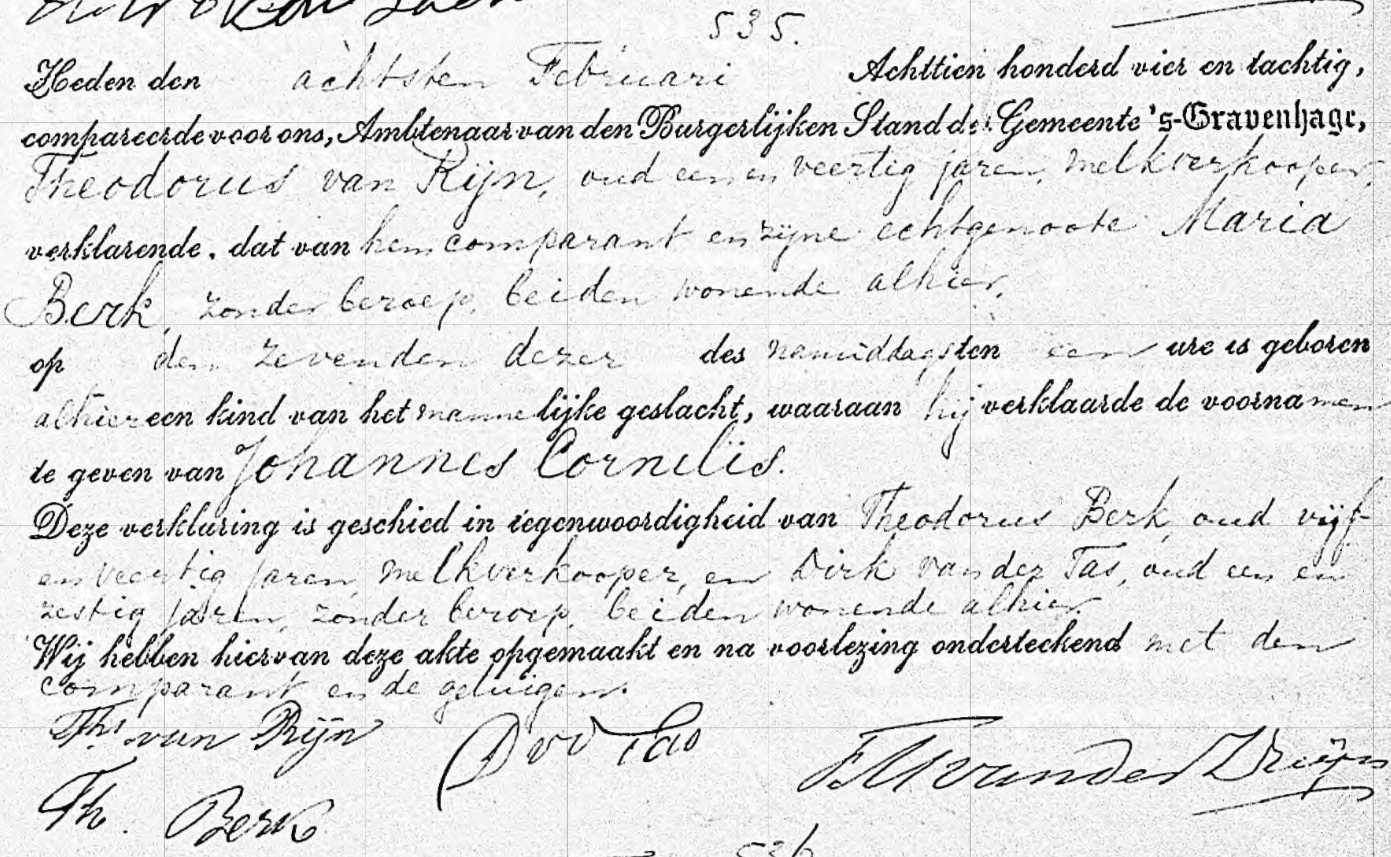 535.
Heden den achtsten Februari Achttien honderd vier en tachtig,
compareerde voor ons, Ambtenaar van den Burgerlijken Stand der Gemeente 's-Gravenhage,
Theodorus van Rijn, oud een en veertig jaren, melkverkooper,
verklarende, dat van hem comparant en zijne echtgenoote Maria
Berk, zonder beroep, beiden wonende alhier,
op den zevenden dezer des namiddags ten een ure is geboren
alhier een kind van het mannelijke geslacht, waaraan hij verklaarde de voornamen
te geven van Johannes Cornelis.
Deze verklaring is geschied in tegenwoordigheid van Theodorus Berk, oud vijf-
en veertig jaren, melkverkooper, en Dirk van der Tas, oud een en
zestig jaren, zonder beroep, beiden wonende alhier.
Wij hebben hiervan deze akte opgemaakt en na voorlezing onderteekend met den
comparant en de getuigen.
Ths van Rijn D vd Tas
Th. Berk
536